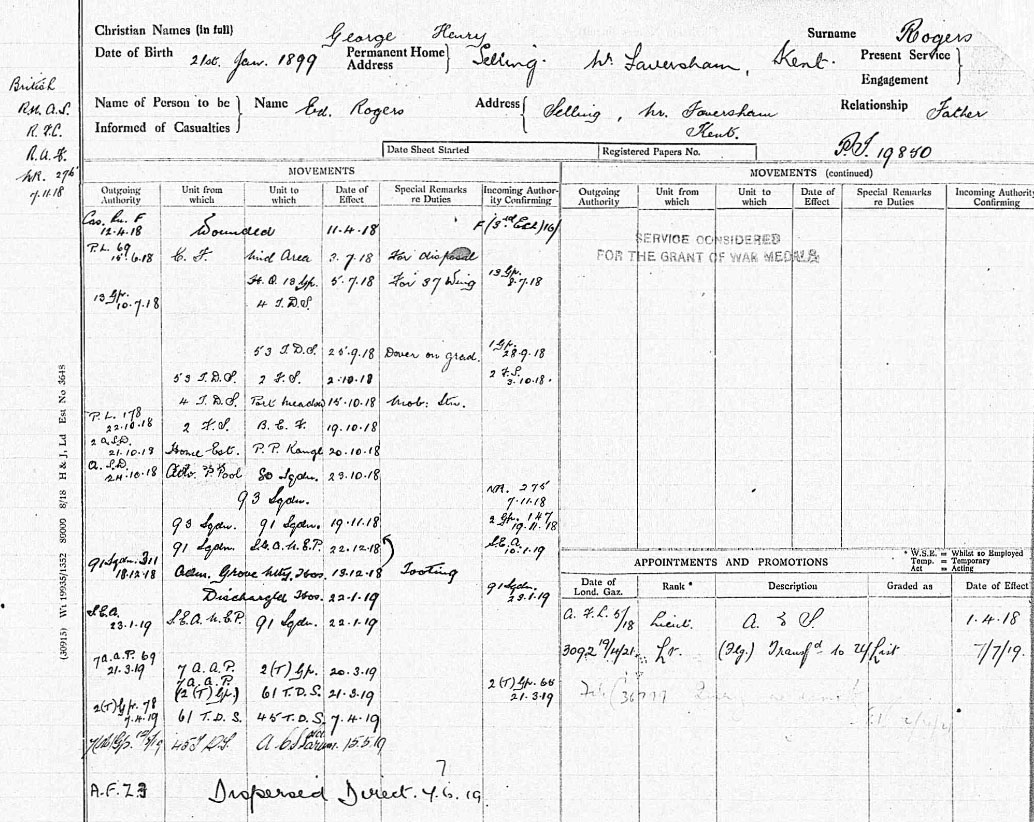 Christian Names (in full) George Henry Surname Rogers
Date of Birth 21st. Jan. 1899 Permanent Home Address Selling. Nr Faversham, Kent. Present Service Engagement
British
R.N.A.S.
R.F.C.
R.A.F.
WR. 275
7.11.18
Name of Person to be Informed of Casualties Name Ed. Rogers Address Selling, Nr. Faversham Kent. Relationship Father
Date Sheet Started Registered Papers No. P.I. 19850
MOVEMENTS
Outgoing Authority Unit from which Unit to which Date of Effect Special Remarks re Duties Incoming Authority Confirming
Cas. Bu. F 12.4.18 Wounded 11.4.18 F/(3rd Ech)16/
P.L. 69 15.6.18 E.F. Mid Area 3.7.18 For disposal
H.Q. 13 Gp. 5.7.18 For 37 Wing 13 Gp. 8.7.18
13 Gp. 10.7.18 4 T.D.S.
53 T.D.S. 25.9.18 Dover on grad. 1 Gp. 28.9.18
53 T.D.S. 2 F.S. 2.10.18 2 F.S. 3.10.18.
4 T.D.S. Port Meadow 15.10.18 Mob: Stn.
P.L. 178 22.10.18 2 F.S. B.E.F. 19.10.18
2 A.S.D. 21.10.18 Home Est. P.P. Rangl 20.10.18
A.S.D. 24.10.18 Adv. P Pool 80 Sqdn. 23.10.18
93 Sqdn. NR. 275 7.11.18
93 Sqdn. 91 Sqdn. 19.11.18 2 Gp. 147 19.11.18
91 Sqdn. S.E.A. N.E.P. 22.12.18 S.E.A. 10.1.19
91 Sqdn. 311 18.12.18 Adm. Grove Mty. Hos. 13.12.18 Tooting
Discharged Hos. 22.1.19 91 Sqdn 23.1.19
S.E.A. 23.1.19 S.E.A. N.E.P. 91 Sqdn. 22.1.19
7 A.A.P. 69 21.3.19 7 A.A.P. 2(T) Gp. 20.3.19
7 A.A.P. (2(T) Gp.) 61 T.D.S. 21.3.19 2(T) Gp. 66 21.3.19
2(T) Gp. 78 7.4.19 61 T.D.S. 45 T.D.S. 7.4.19
45 T.D.S. 15.5.19
A.F.Z.3 Dispersed Direct. 7.6.19
7
MOVEMENTS (continued)
Outgoing Authority Unit from which Unit to which Date of Effect Special Remarks re Duties Incoming Authority Confirming
SERVICE CONSIDERED
FOR THE GRANT OF WAR MEDALS
* W.S.E. = Whilst so Employed
Temp. = Temporary
Act = Acting
APPOINTMENTS AND PROMOTIONS
Date of Lond. Gaz. Rank * Description Graded as Date of Effect
A.F.L. 5/18 Lieut. A. & S. 1.4.18
30921 Lt. (Flg) Transfd to U/List 7/7/19
(30915) Wt 19935/1352 80000 8/18 H & J, Ld Est No 3648